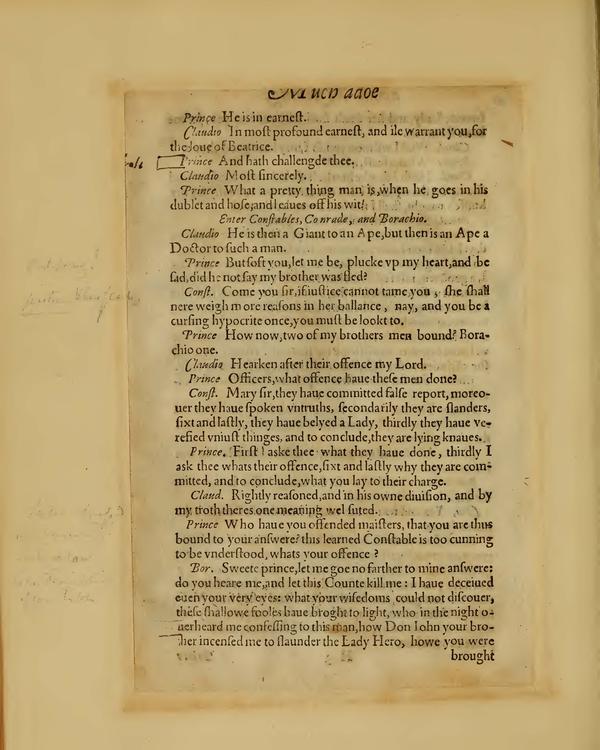 Much adoe
Prince He is in earneſt.
Claudio In moſt profound earneſt, and ile warrant you, for
the loue of Beatrice.
Prince And hath challengde thee.
Claudio Moſt ſincerely.
Prince What a pretty thing man is, when he goes in his
dublet and hoſe, and leaues off his wit!
Enter Conſtables, Conrade, and Borachio.
Claudio He is then a Giant to an Ape, but then is an Ape a
Doctor to ſuch a man.
Prince But ſoft you, let me be, plucke vp my heart, and be
ſad, did he not ſay my brother was fled?
Conſt. Come you ſir, if iuſtice cannot tame you, ſhe ſhall
nere weigh more reaſons in her ballance, nay, and you be a
curſing hypocrite once, you muſt be lookt to.
Prince How now, two of my brothers men bound? Bora-
chio one.
Claudio Hearken after their offence my Lord.
Prince Officers, what offence haue theſe men done?
Conſt. Mary ſir, they haue committed falſe report, moreo-
uer they haue ſpoken vntruths, ſecondarily they are ſlanders,
ſixt and laſtly, they haue belyed a Lady, thirdly they haue ve-
refied vniuſt thinges, and to conclude, they are lying knaues.
Prince. Firſt I aske thee what they haue done, thirdly I
ask thee whats their offence, ſixt and laſtly why they are com-
mitted, and to conclude, what you lay to their charge.
Claud. Rightly reaſoned, and in his owne diuiſion, and by
my troth theres one meaning wel ſuted.
Prince Who haue you offended maiſters, that you are thus
bound to your anſwere? this learned Conſtable is too cunning
to be vnderſtood, whats your offence ?
Bor. Sweete prince, let me goe no farther to mine anſwere:
do you heare me, and let this Counte kill me: I haue deceiued
euen your very eyes: what your wiſedoms could not diſcouer,
theſe ſhallowe fooles haue broght to light, who in the night o-
uerheard me confeſſing to this man, how Don Iohn your bro-
ther incenſed me to ſlaunder the Lady Hero, howe you were
brought